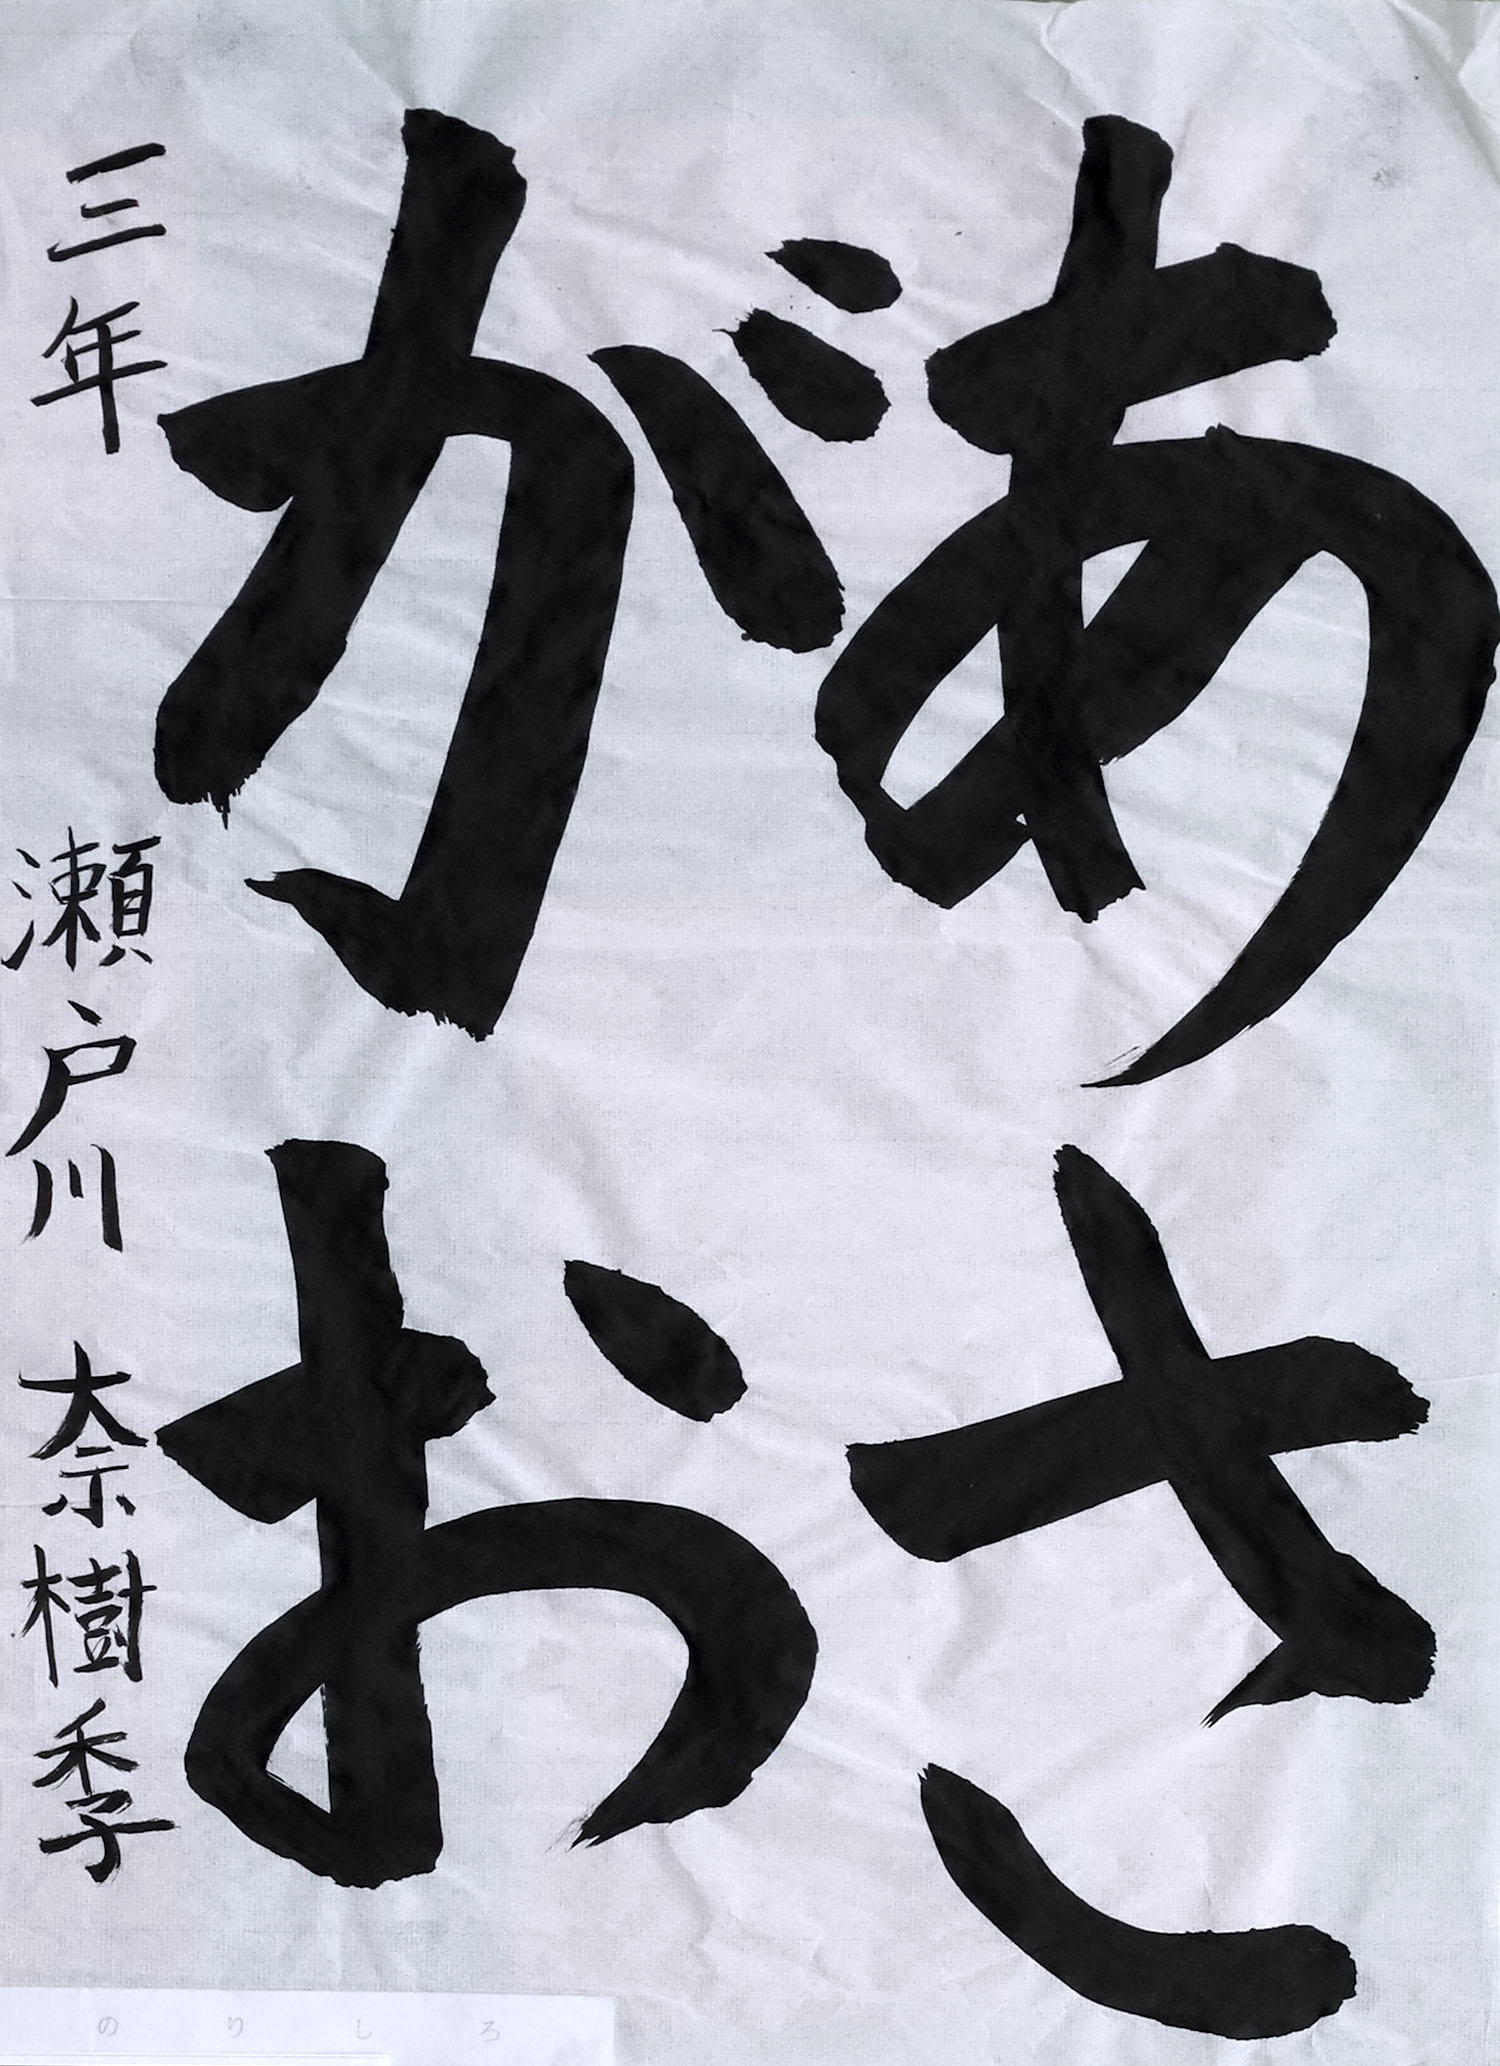 あさ
がお
三年 瀬戸川 奈樹季
のりしろ